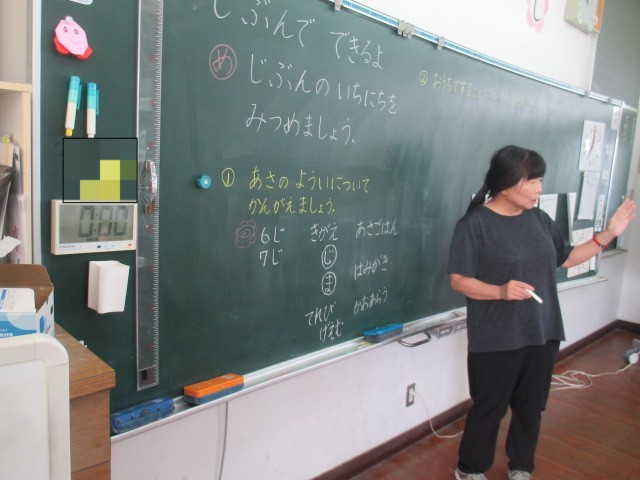 じぶんで できるよ
め じぶんの いちにちを
みつめましょう。
① あさの よういについて
かんがえましょう。
6じ きがえ あさごはん
7じ じ
ま はみがき
てれび かおあらう
げえむ
② おうちでする
0:00